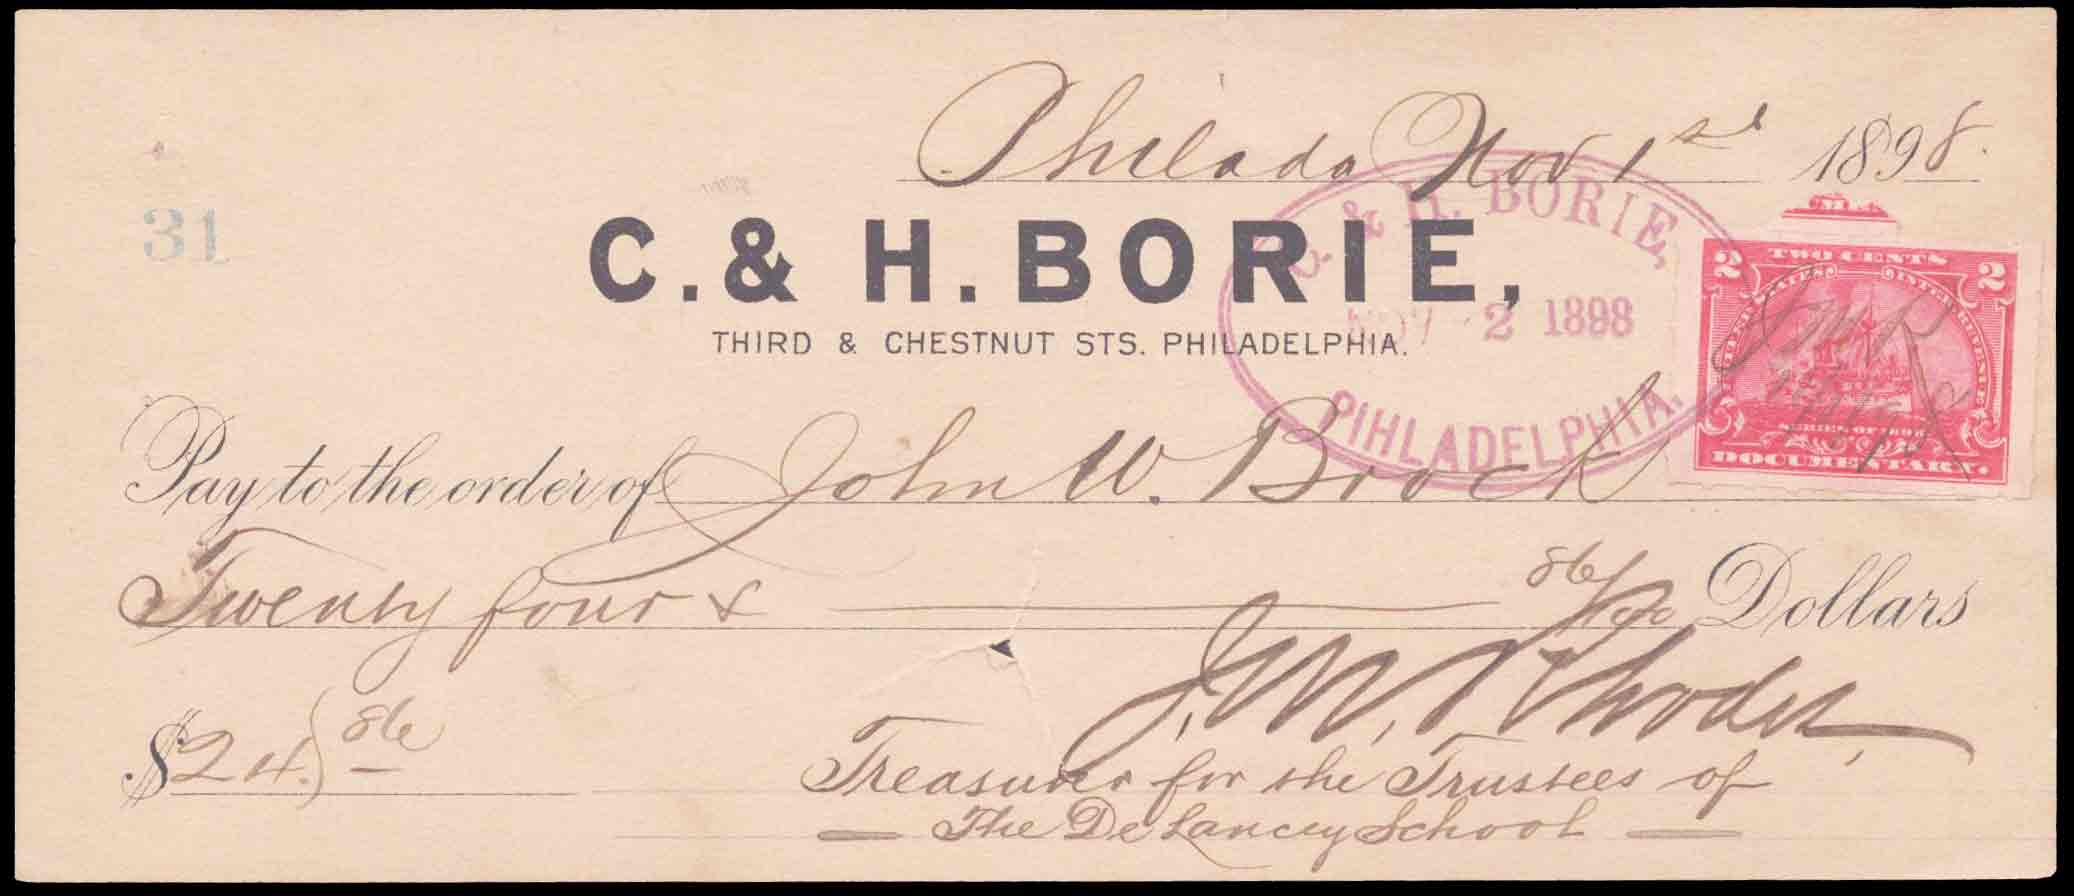 Philada Nov 1st 1898.
31
C. & H. BORIE,
THIRD & CHESTNUT STS. PHILADELPHIA.
C. & H. BORIE,
NOV 2 1898
PIHLADELPHIA.
2 TWO CENTS 2
UNITED STATES INTER. REVENUE
SERIES OF 1898
DOCUMENTARY.
J M R
11/1/98
Pay to the order of John W. Brock
Twenty four & 86/100 Dollars
$24.86
J. M. Rhodes,
Treasurer for the Trustees of
The De Lancey School